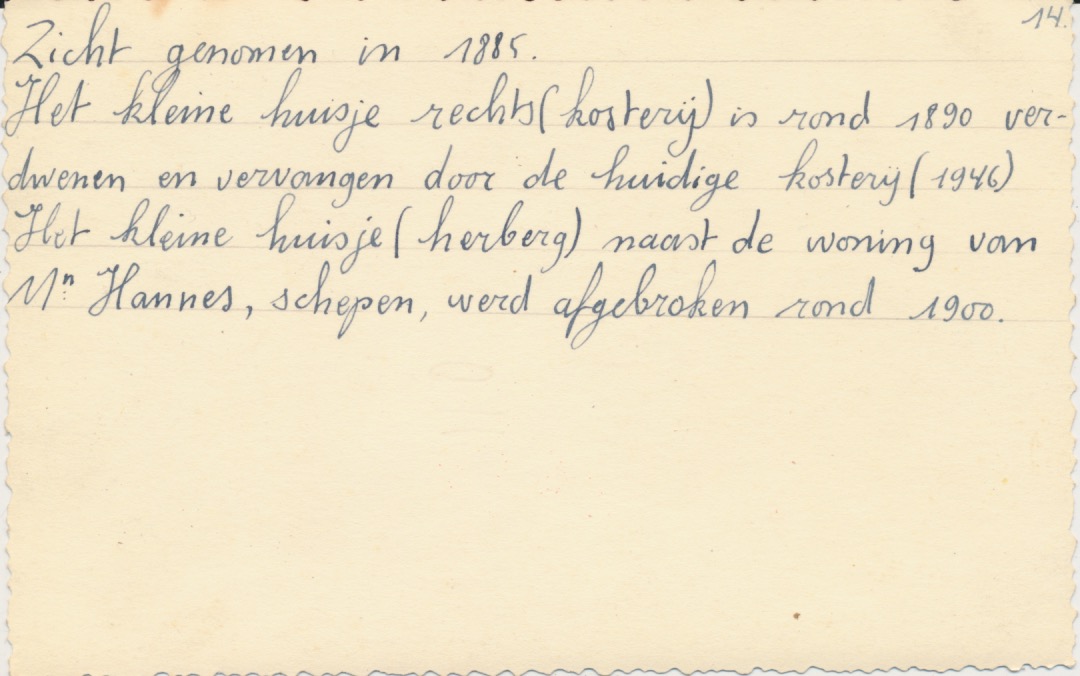 14.
Zicht genomen in 1885.
Het kleine huisje rechts (kosterij) is rond 1890 ver-
dwenen en vervangen door de huidige kosterij (1946)
Het kleine huisje (herberg) naast de woning van
Mn Hannes, schepen, werd afgebroken rond 1900.